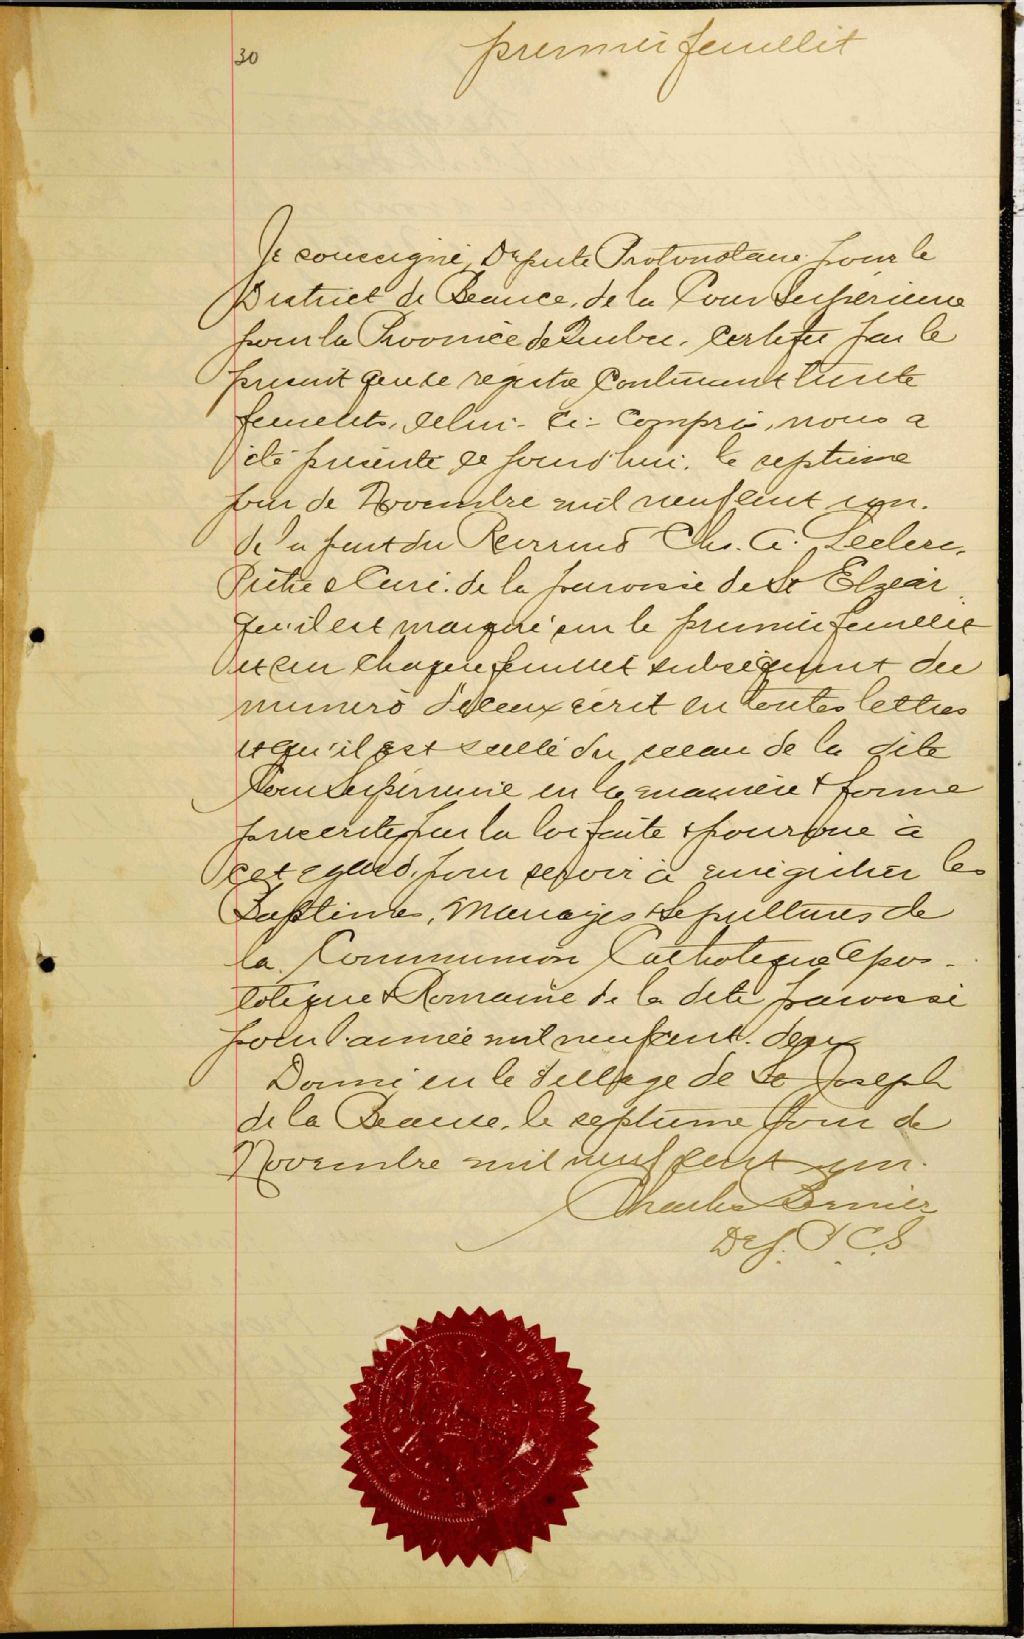 30
premier feuillet
Je soussigné, Député Protonotaire pour le
District de Beauce, de la Cour Supérieure
pour la Province de Québec, certifie par le
présent que ce régistre contenant trente
feuillets, celui-ci compris, nous a
été présenté ce jourd'hui, le septième
jour de Novembre mil neuf cent un.
de la part du Révérend Chs. A. Leclerc,
Prêtre & Curé de la paroisse de St Elzéar
qu'il est marqué sur le premier feuillet
et sur chaque feuillet subséquent du
numéro d'iceux écrit en toutes lettres
et qu'il est scellé du sceau de la dite
Cour Supérieure en la manière & forme
prescrite par la loi faite & pourvue à
cet égard, pour servir à enrégistrer les
Baptêmes, Mariages & Sépultures de
la Communion Catholique Apos-
tolique & Romaine de la dite paroisse
pour l'année mil neuf cent deux
Donné en le Village de St Joseph
de la Beauce, le septième jour de
Novembre mil neuf cent un.
Charles Bernier
Dép. P.C.S